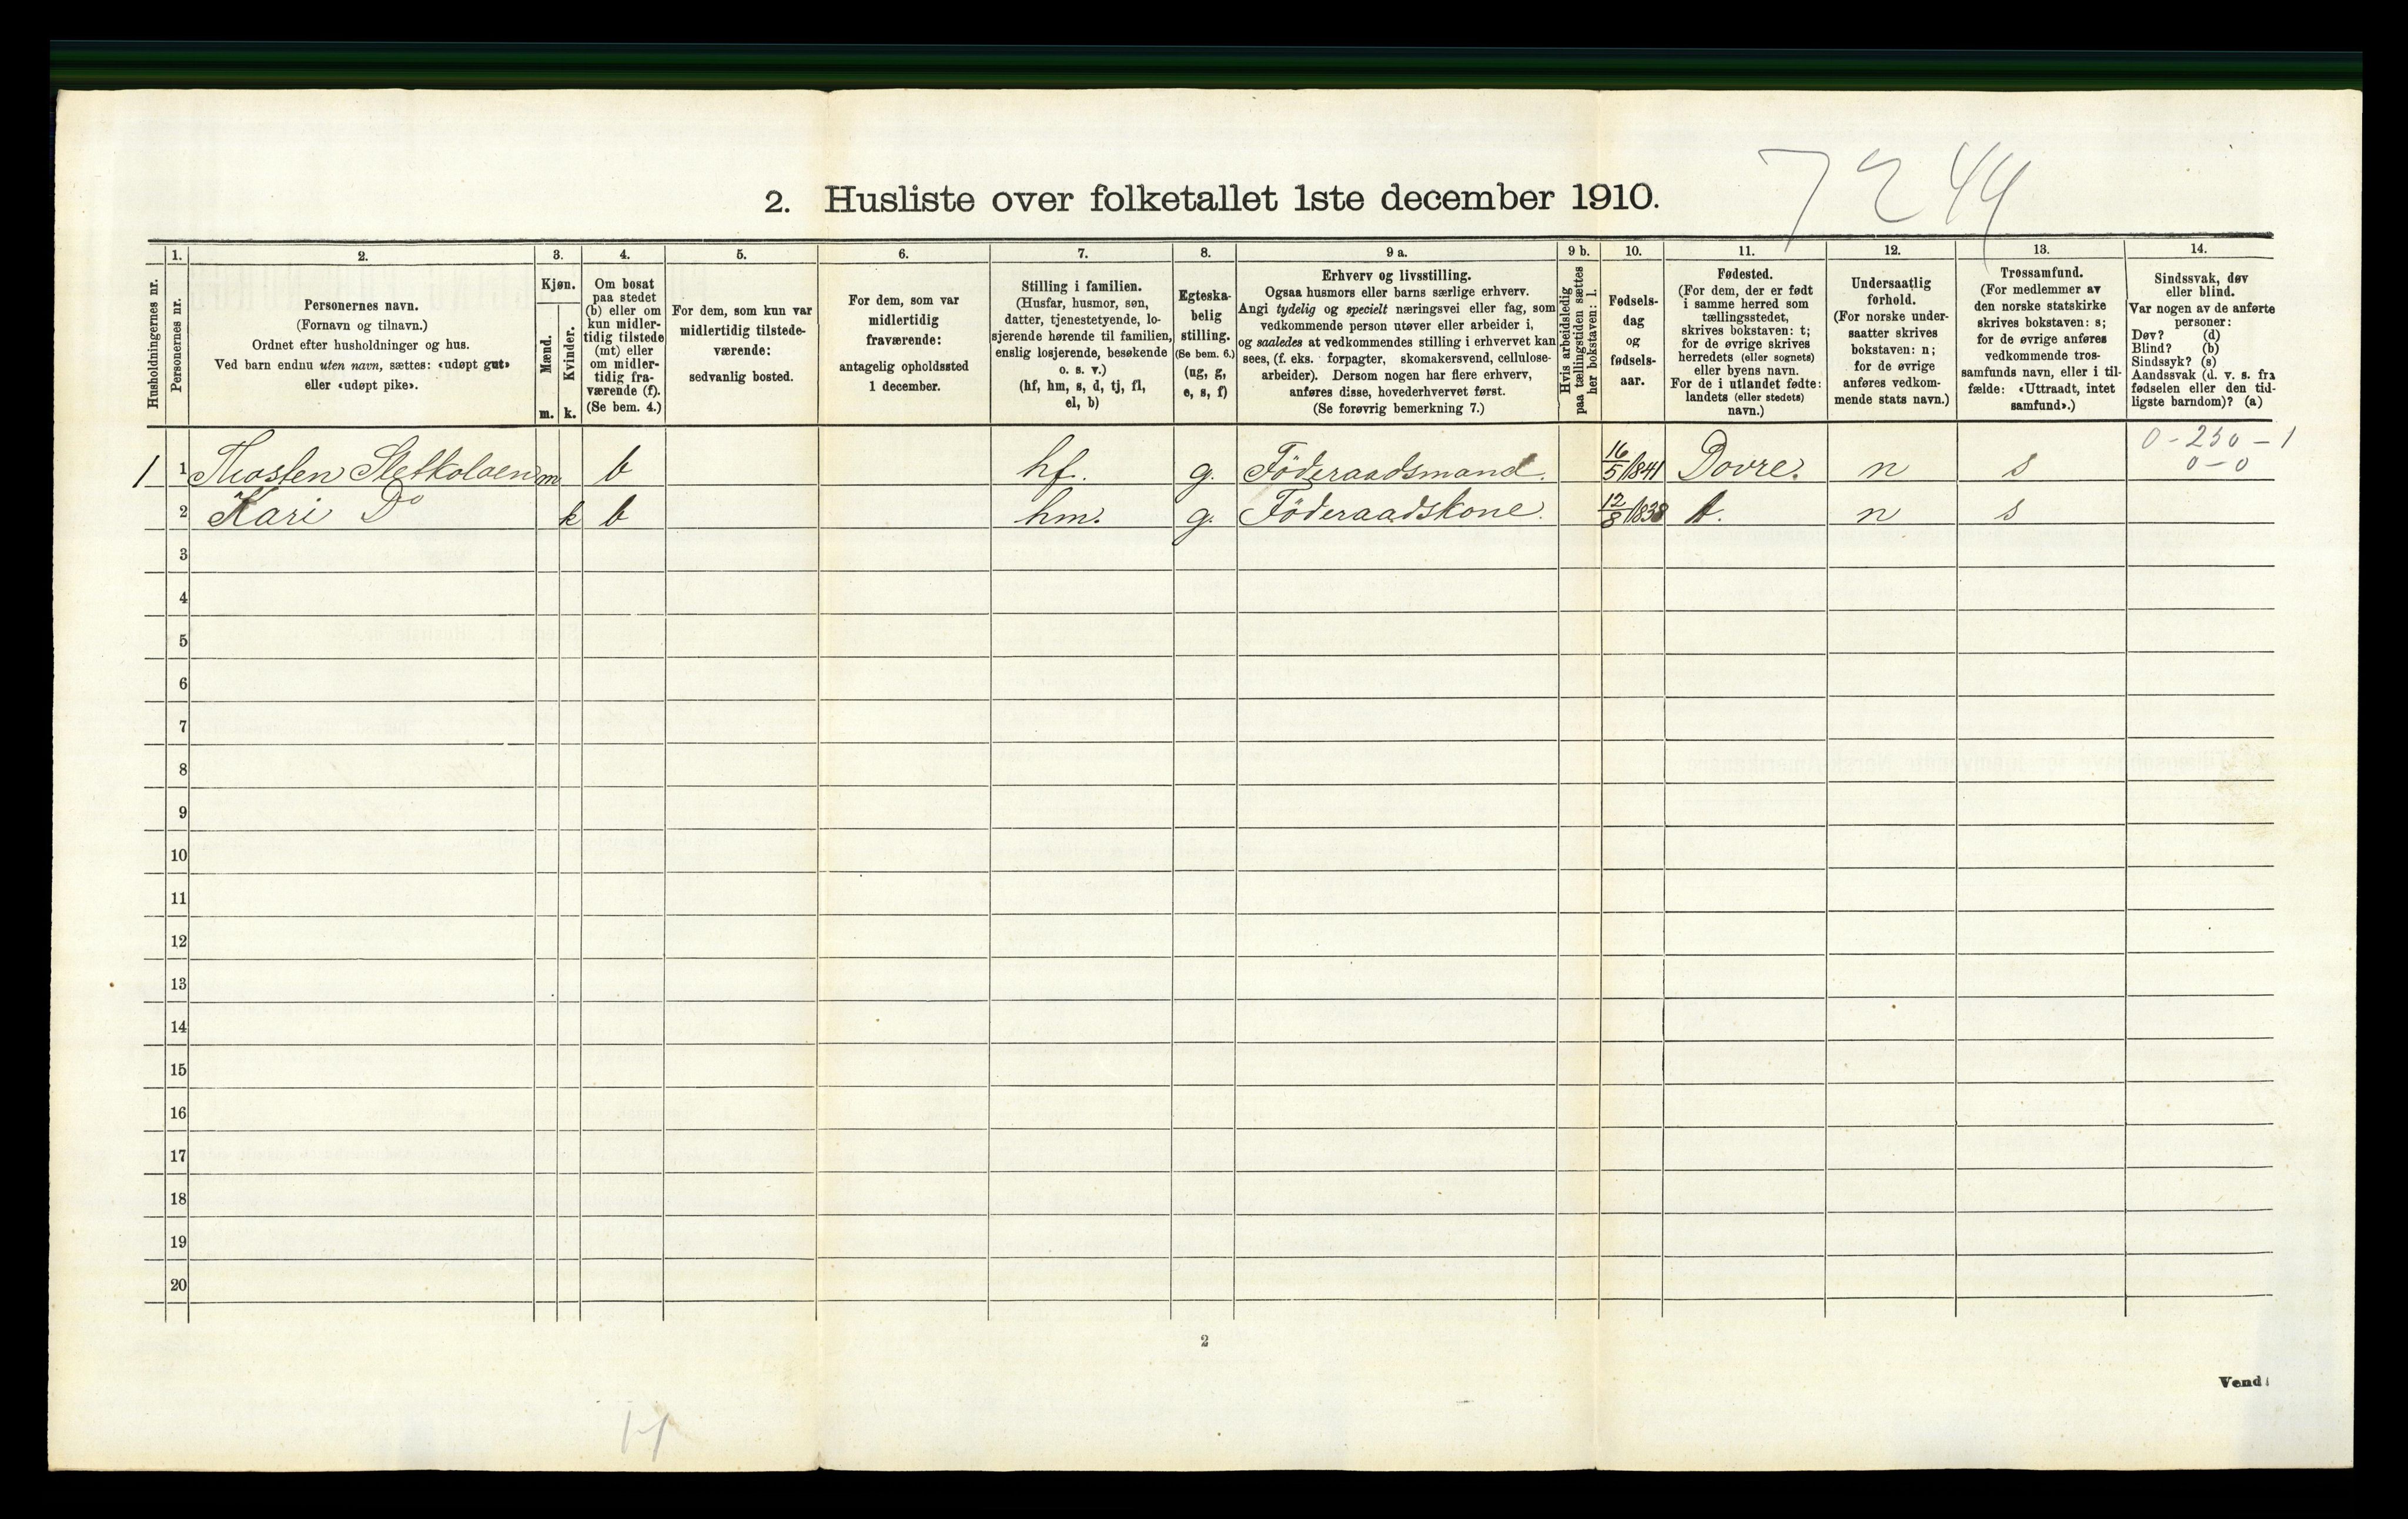 7244
2. Husliste over folketallet 1ste december 1910.
Husholdningernes nr.
1.
Personernes nr.
2.
Personernes navn.
(Fornavn og tilnavn.)
Ordnet efter husholdninger og hus.
Ved barn endnu uten navn, sættes: «udøpt gut»
eller «udøpt pike».
3.
Kjøn.
Mænd.
m.
Kvinder.
k.
4.
Om bosat
paa stedet
(b) eller om
kun midler-
tidig tilstede
(mt) eller
om midler-
tidig fra-
værende (f).
(Se bem. 4.)
5.
For dem, som kun var
midlertidig tilstede-
værende:
sedvanlig bosted.
6.
For dem, som var
midlertidig
fraværende:
antagelig opholdssted
1 december.
7.
Stilling i familien.
(Husfar, husmor, søn,
datter, tjenestetyende, lo-
sjerende hørende til familien,
enslig losjerende, besøkende
o. s. v.)
(hf, hm, s, d, tj, fl,
el, b)
8.
Egteska-
belig
stilling.
(Se bem. 6.)
(ug, g,
e, s, f)
9 a.
Erhverv og livsstilling.
Ogsaa husmors eller barns særlige erhverv.
Angi tydelig og specielt næringsvei eller fag, som
vedkommende person utøver eller arbeider i,
og saaledes at vedkommendes stilling i erhvervet kan
sees, (f. eks. forpagter, skomakersvend, cellulose-
arbeider). Dersom nogen har flere erhverv,
anføres disse, hovederhvervet først.
(Se forøvrig bemerkning 7.)
9 b.
Hvis arbeidsledig
paa tællingstiden sættes
her bokstaven: l.
10.
Fødsels-
dag
og
fødsels-
aar.
11.
Fødested.
(For dem, der er født
i samme herred som
tællingsstedet,
skrives bokstaven: t;
for de øvrige skrives
herredets (eller sognets)
eller byens navn.
For de i utlandet fødte:
landets (eller stedets)
navn.)
12.
Undersaatlig
forhold.
(For norske under-
saatter skrives
bokstaven: n;
for de øvrige
anføres vedkom-
mende stats navn.)
13.
Trossamfund.
(For medlemmer av
den norske statskirke
skrives bokstaven: s;
for de øvrige anføres
vedkommende tros-
samfunds navn, eller i til-
fælde: «Uttraadt, intet
samfund».)
14.
Sindssvak, døv
eller blind.
Var nogen av de anførte
personer:
Døv? (d)
Blind? (b)
Sindssyk? (s)
Aandssvak (d. v. s. fra
fødselen eller den tid-
ligste barndom)? (a)
0-230-1
0-0
1 1 Thosten Sletkolaen m b hf. g. Föderaadsmand. 16/5 1841 Dovre. n s
2 Kari Do k b hm. g. Föderaadskone. 12/8 1838 t. n s
3
4
5
6
7
8
9
10
11
12
13
14
15
16
17
18
19
20
2
Vend!